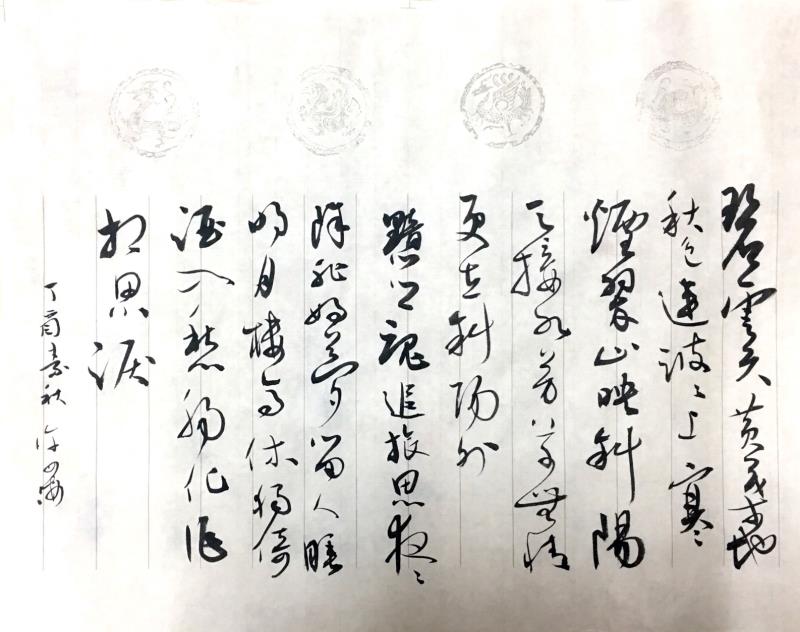 碧雲天黃葉地
秋色連波〻上寒
煙翠山映斜陽
天接水芳草無情
更在斜陽外
黯鄉魂追旅思夜〻
除非好夢留人睡
明月樓高休獨倚
酒入愁腸化作
相思淚
丁酉秋